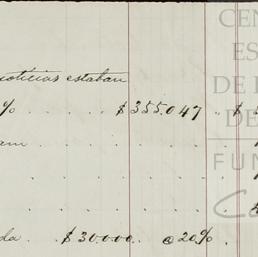 noticias estaban
% . . $355.047 $
. . . . .
. . . . .
. . . . .
da . . $30000. @ 20%.
CEN
ES
DE
DE
FUN
Ca